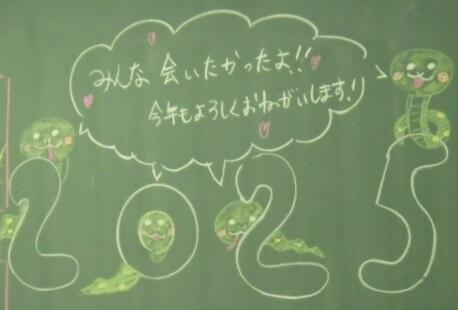 みんな 会いたかったよ!!
今年もよろしくおねがいします!!
2025